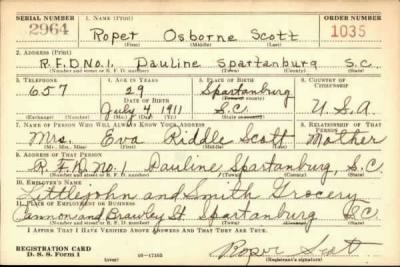 SERIAL NUMBER 1. NAME (Print) ORDER NUMBER
2964 Roper Osborne Scott 1035
(First) (Middle) (Last)
2. ADDRESS (Print)
R.F.D No.1. Pauline Spartanburg S.C.
(Number and street or R. F. D. number) (Town) (County) (State)
3. TELEPHONE 4. AGE IN YEARS 5. PLACE OF BIRTH 6. COUNTRY OF CITIZENSHIP
657 29 Spartanburg
DATE OF BIRTH (Town or county)
July 4, 1911 S.C. U.S.A
(Exchange) (Number) (Mo.) (Day) (Yr.) (State or country)
7. NAME OF PERSON WHO WILL ALWAYS KNOW YOUR ADDRESS 8. RELATIONSHIP OF THAT PERSON
Mrs. Eva Riddle Scott Mother
(Mr., Mrs., Miss) (First) (Middle) (Last)
9. ADDRESS OF THAT PERSON
R.F.D. No.1 Pauline Spartanburg, S.C
(Number and street or R. F. D. number) (Town) (County) (State)
10. EMPLOYER'S NAME
Littlejohn and Smith Grocery
11. PLACE OF EMPLOYMENT OR BUSINESS
Cannon and Brawley St. Spartanburg S.C.
(Number and street or R. F. D. number) (Town) (County) (State)
I AFFIRM THAT I HAVE VERIFIED ABOVE ANSWERS AND THAT THEY ARE TRUE.
REGISTRATION CARD Roper Scott
D. S. S. Form 1 (over) 16-17105 (Registrant's signature)